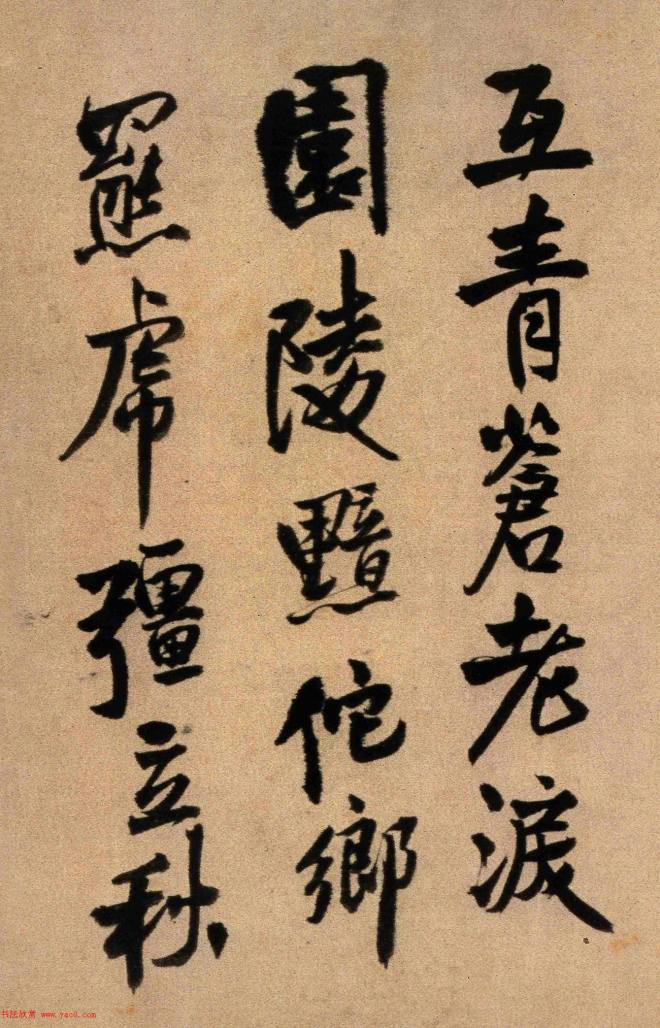 互青蒼老淚
園陵黯佗鄉
羆虎彊立秋
书法欣赏 www.yac8.com